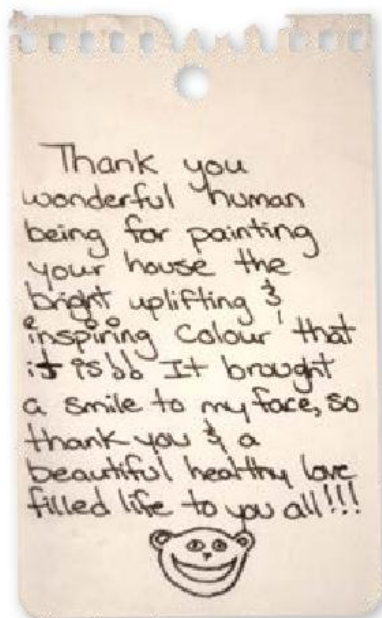 Thank you
wonderful human
being for painting
your house the
bright uplifting &
inspiring colour that
it is!! It brought
a smile to my face, so
thank you & a
beautiful healthy love
filled life to you all!!!